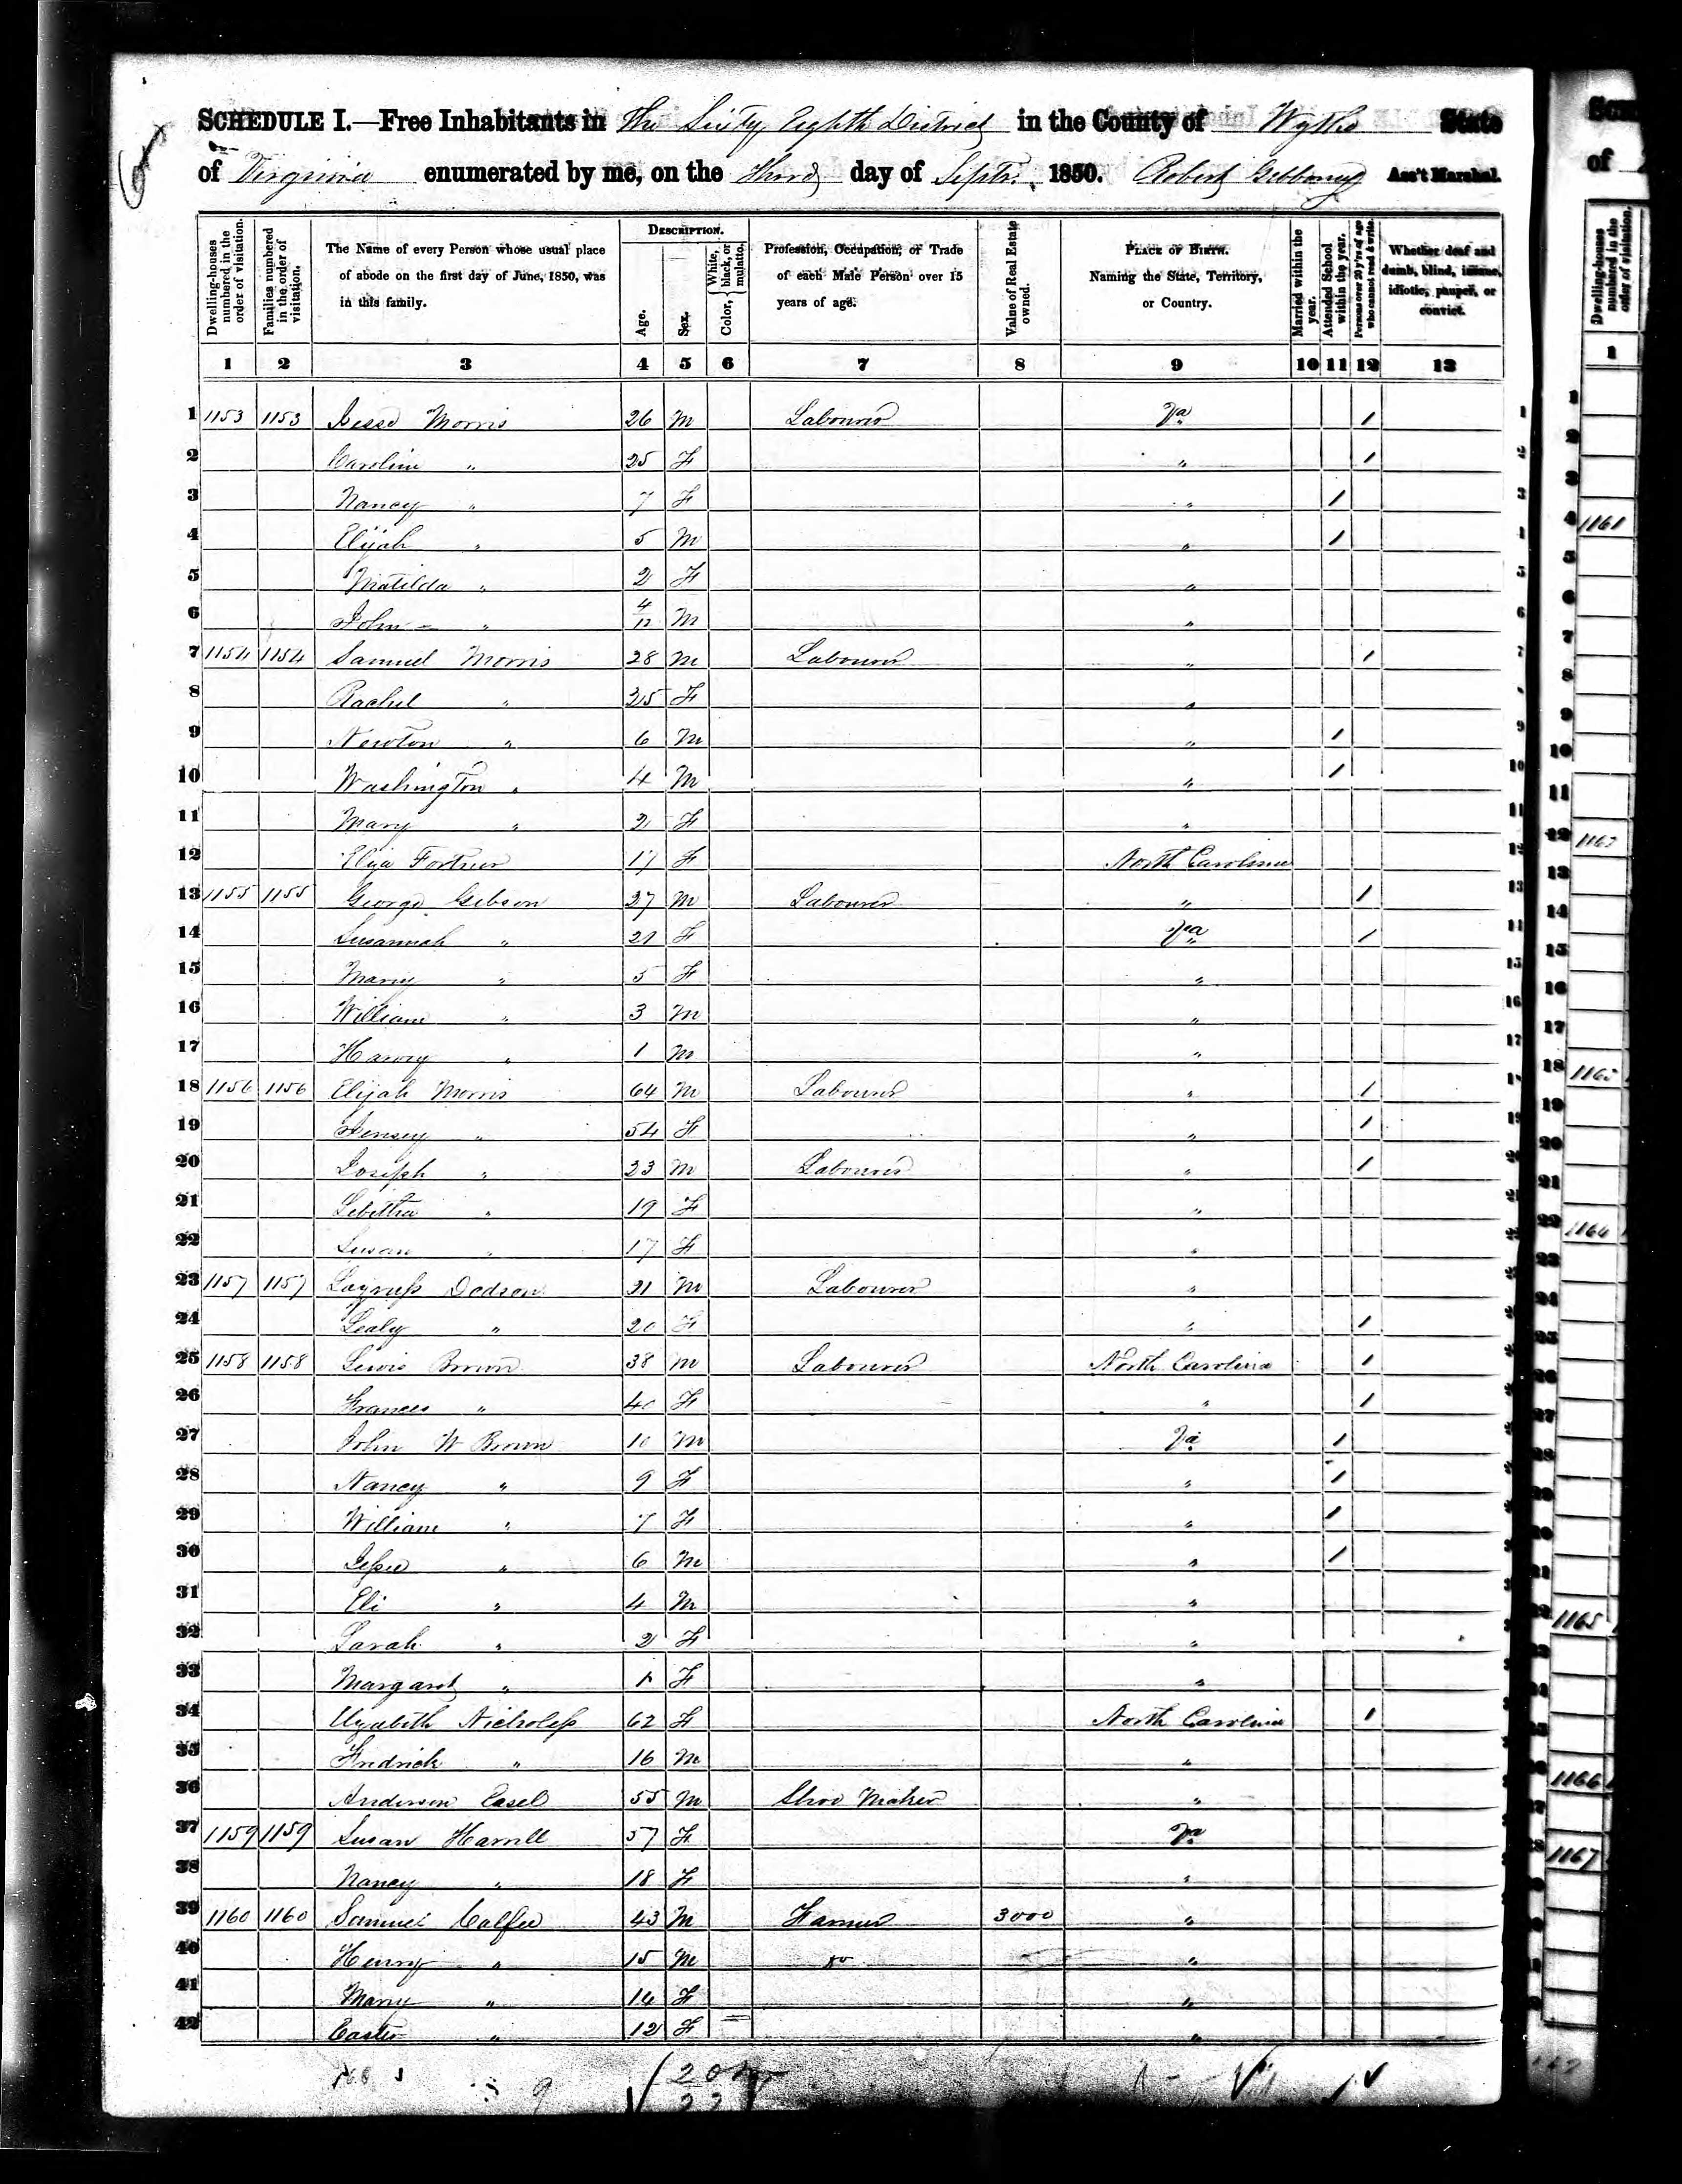 SCHEDULE I.—Free Inhabitants in The Sixty Eighth District in the County of Wythe State
of Virginia enumerated by me, on the Third day of Septr. 1850. Robert Gibboney Ass't Marshal.
Dwelling-houses numbered in the order of visitation.
Families numbered in the order of visitation.
The Name of every Person whose usual place of abode on the first day of June, 1850, was in this family.
DESCRIPTION.
Age.
Sex.
Color, { White, black, or mulatto.
Profession, Occupation, or Trade of each Male Person over 15 years of age.
Value of Real Estate owned.
PLACE OF BIRTH. Naming the State, Territory, or Country.
Married within the year.
Attended School within the year.
Persons over 20 y'rs of age who cannot read & write.
Whether deaf and dumb, blind, insane, idiotic, pauper, or convict.
1 2 3 4 5 6 7 8 9 10 11 12 13
1 1153 1153 Jesse Morris 26 M Labourer Va 1
2 Caroline " 25 F " 1
3 Nancy " 7 F " 1
4 Elijah " 5 M " 1
5 Matilda " 2 F "
6 John " 4/12 M "
7 1154 1154 Samuel Morris 28 M Labourer " 1
8 Rachel " 25 F "
9 Newton " 6 M " 1
10 Washington " 4 M " 1
11 Mary " 2 F "
12 Eliza Fortner 17 F North Carolina
13 1155 1155 George Gibson 27 M Labourer " 1
14 Susannah " 21 F Va 1
15 Mary " 5 F "
16 William " 3 M "
17 Harvy " 1 M "
18 1156 1156 Elijah Morris 64 M Labourer " 1
19 " 54 F " 1
20 Joseph " 23 M Labourer " 1
21 Lebitha " 19 F "
22 Susan " 17 F "
23 1157 1157 Dodson 21 M Labourer "
24 Lealy " 20 F " 1
25 1158 1158 Lewis Brown 38 M Labourer North Carolina 1
26 Frances " 40 F " 1
27 John W Brown 10 M Va 1
28 Nancy " 9 F " 1
29 William " 7 F " 1
30 Jesse " 6 M " 1
31 Eli " 4 M "
32 Sarah " 2 F "
33 Margaret " 1 F "
34 Elizabeth Nicholass 62 F North Carolina 1
35 Fredrick " 16 M "
36 Anderson Casel 55 M Shoe Maker "
37 1159 1159 Susan Harrell 57 F Va
38 Nancy " 18 F "
39 1160 1160 Samuel Calfee 43 M Farmer 3000 "
40 Henry " 15 M do "
41 Mary " 14 F "
42 Easter " 12 F "
20 m
22
1
1161
1164
1165
1166
1167